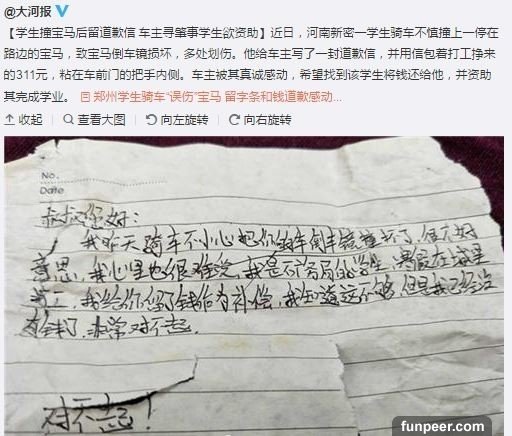 @大河报
【学生撞宝马后留道歉信 车主寻肇事学生欲资助】近日，河南新密一学生骑车不慎撞上一停在
路边的宝马，致宝马倒车镜损坏，多处划伤。他给车主写了一封道歉信，并用信包着打工挣来
的311元，粘在车前门的把手内侧。车主被其真诚感动，希望找到该学生将钱还给他，并资助
其完成学业。 郑州学生骑车“误伤”宝马 留字条和钱道歉感动...
收起 查看大图 向左旋转 向右旋转
No.
Date
叔叔您好：
我昨天骑车不小心把你的车倒车镜撞坏了，很不好
意思，我心里也很难受，我是的学生，暑假在这里
我给你留了钱作为补偿，我知道这不够，但是我已经没
有钱了，非常对不起。
对不起！
funpeer.com